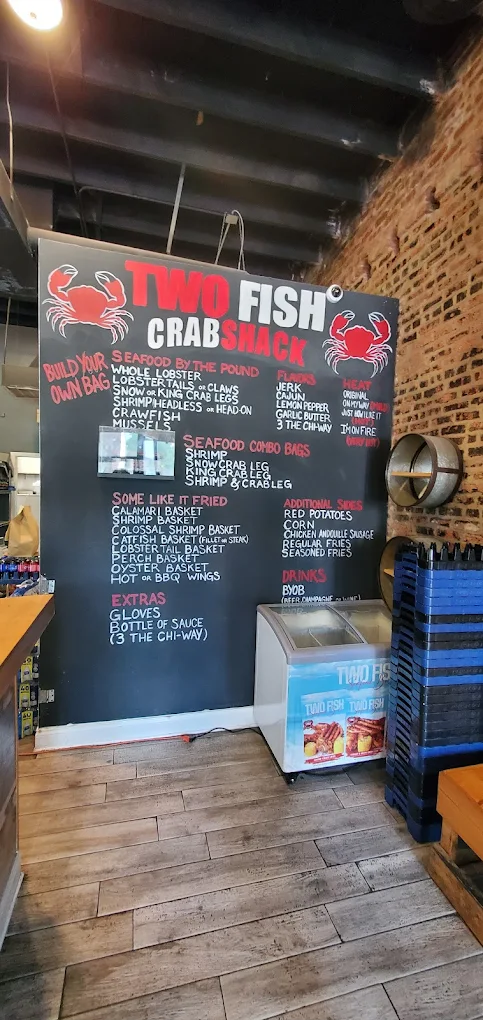 TWO FISH
CRABSHACK
BUILD YOUR
OWN BAG
SEAFOOD BY THE POUND
WHOLE LOBSTER
LOBSTERTAILS OR CLAWS
SNOW OR KING CRAB LEGS
SHRIMP HEADLESS OR HEAD-ON
CRAWFISH
MUSSELS
FLAVORS
JERK
CAJUN
LEMON PEPPER
GARLIC BUTTER
3 THE CHI-WAY
HEAT
ORIGINAL
ON MY WAY (MILD)
JUST HOW I LIKE IT
I'M ON FIRE
(VERY HOT)
SEAFOOD COMBO BAGS
SHRIMP
SNOWCRAB LEG
KING CRAB LEG
SHRIMP & CRAB LEG
SOME LIKE IT FRIED
CALAMARI BASKET
SHRIMP BASKET
COLOSSAL SHRIMP BASKET
CATFISH BASKET (FILLET OR STEAK)
LOBSTER TAIL BASKET
PERCH BASKET
OYSTER BASKET
HOT OR BBQ WINGS
ADDITIONAL SIDES
RED POTATOES
CORN
CHICKEN ANDOUILLE SAUSAGE
REGULAR FRIES
SEASONED FRIES
EXTRAS
GLOVES
BOTTLE OF SAUCE
(3 THE CHI-WAY)
DRINKS
BYOB
(BEER, CHAMPAGNE OR WINE)
TWO FIS
TWO FISH
TWO FISH